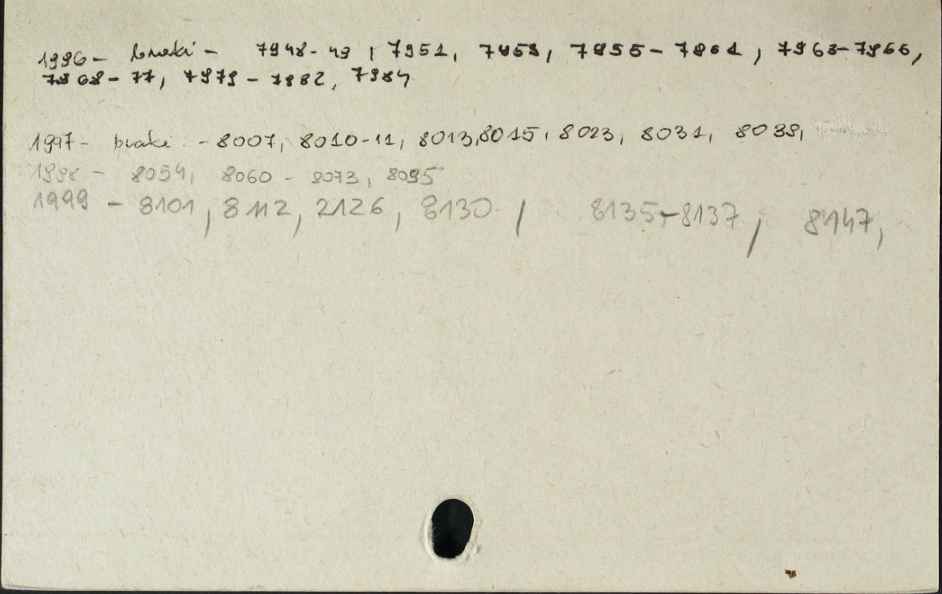 1996 - braki - 7948-49, 7951, 7953, 7955-7961, 7963-7966,
7968-77, 7979-7982, 7984
1997 - braki - 8007, 8010-11, 8013, 8015, 8023, 8031, 8039,
1998 - 8054, 8060 - 8073, 8095
1999 - 8101, 8112, 2126, 8130, 8135-8137, 8147,